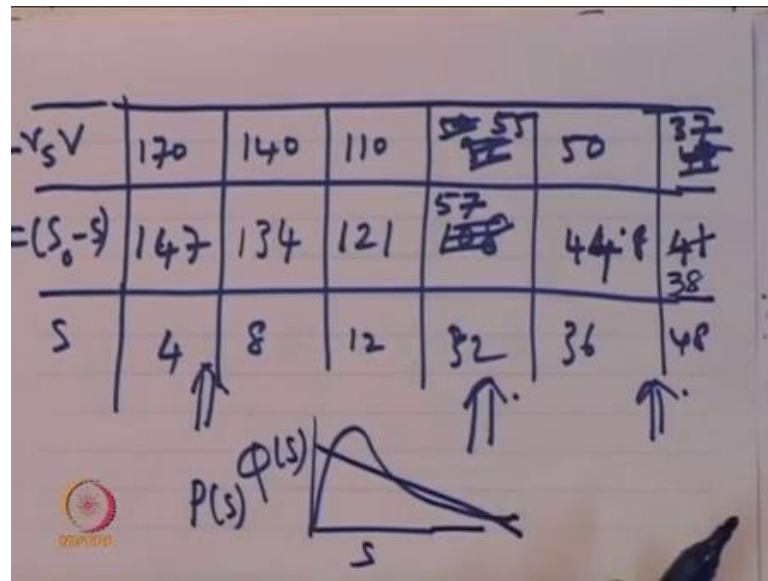 -rsV 170 140 110 55 50 37
=(S₀-S) 147 134 121 57 44.8 41
38
S 4 8 12 32 36 48
φ(S)
P(S)
S
NPTEL